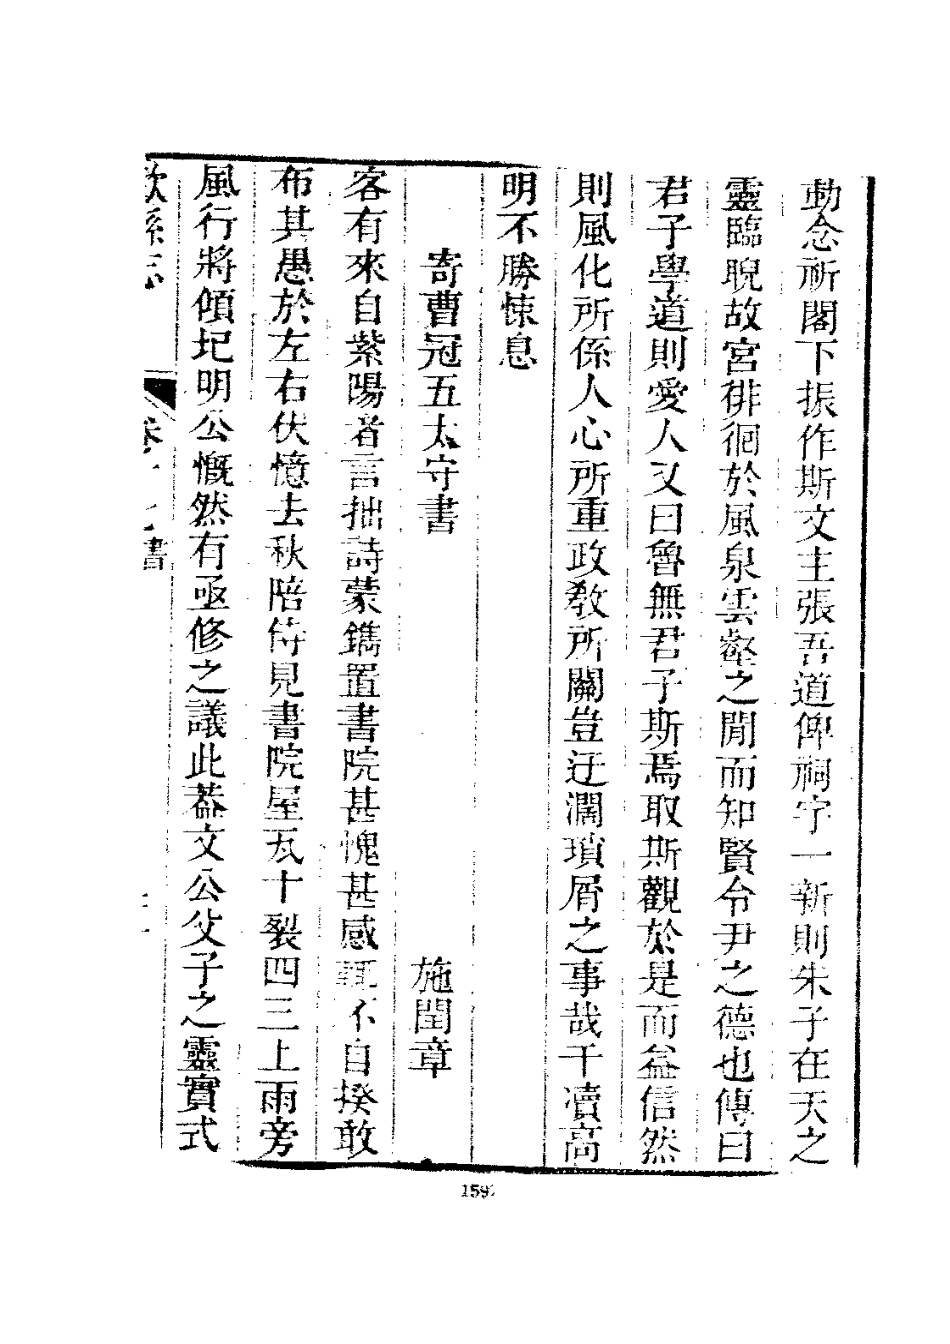 動念祈閣下振作斯文主張吾道俾祠宇一新則朱子在天之
靈臨睨故宮徘徊於風泉雲壑之閒而知賢令尹之德也傳曰
君子學道則愛人又曰魯無君子斯焉取斯觀於是而益信然
則風化所係人心所重政敎所關豈迂濶瑣屑之事哉干凟高
明不勝悚息
寄曹冠五太守書
施閏章
客有來自紫陽者言拙詩蒙鐫置書院甚愧甚感輒不自揆敢
布其愚於左右伏憶去秋陪侍見書院屋瓦十裂四三上雨旁
風行將傾圮明公慨然有亟修之議此葢文公父子之靈實式
歙縣志
卷 之 書
159